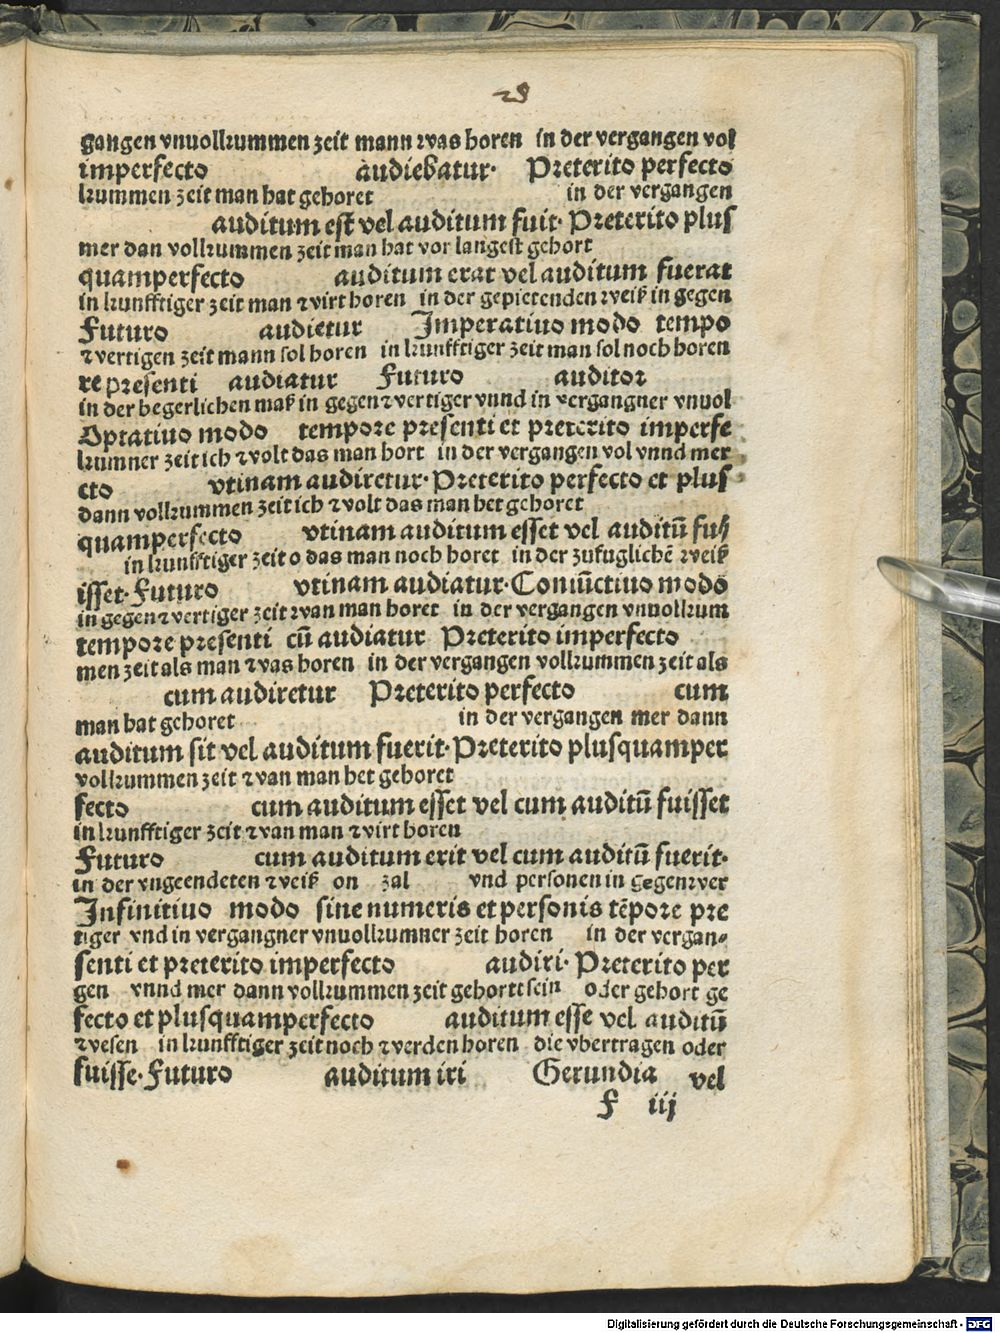 28
gangen vnuolkummen zeit mann was horen in der vergangen vol
imperfecto audiebatur· Preterito perfecto
kummen zeit man hat gehoret in der vergangen
auditum est vel auditum fuit· Preterito plus
mer dan vollkummen zeit man hat vor langest gehort
quamperfecto auditum erat vel auditum fuerat
in kunfftiger zeit man wirt horen in der gepietenden weiß in gegen
Futuro audietur Imperatiuo modo tempo
wertigen zeit mann sol horen in kunfftiger zeit man sol noch horen
re presenti audiatur Futuro auditor
in der begerlichen maß in gegenwertiger vnnd in vergangner vnuol
Optatiuo modo tempore presenti et preterito imperfe
kumner zeit ich wolt das man hort in der vergangen vol vnnd mer
cto vtinam audiretur· Preterito perfecto et plus
dann vollkummen zeit ich wolt das man het gehoret
quamperfecto vtinam auditum esset vel auditū fu
in kunfftiger zeit o das man noch horet in der zufuglichē weiß
isset· Futuro vtinam audiatur· Coniūctiuo modo
in gegenwertiger zeit wan man horet in der vergangen vnuolkum
tempore presenti cū audiatur Preterito imperfecto
men zeit als man was horen in der vergangen vollkummen zeit als
cum audiretur Preterito perfecto cum
man hat gehoret in der vergangen mer dann
auditum sit vel auditum fuerit· Preterito plusquamper
vollkummen zeit wan man het gehoret
fecto cum auditum esset vel cum auditū fuisset
in kunfftiger zeit wan man wirt horen
Futuro cum auditum erit vel cum auditū fuerit·
in der vngeendeten weiß on zal vnd personen in gegenwer
Infinitiuo modo sine numeris et personis tēpore pre
tiger vnd in vergangner vnuolkumner zeit horen in der vergan-
senti et preterito imperfecto audiri· Preterito per
gen vnnd mer dann vollkummen zeit gehort sein oder gehort ge
fecto et plusquamperfecto auditum esse vel auditū
wesen in kunfftiger zeit noch werden horen die vbertragen oder
fuisse· Futuro auditum iri Gerundia vel
F iij
Digitalisierung gefördert durch die Deutsche Forschungsgemeinschaft - DFG